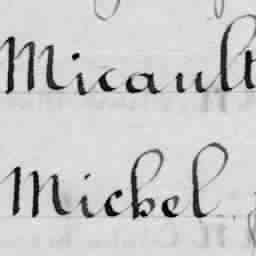 Micault
Michel